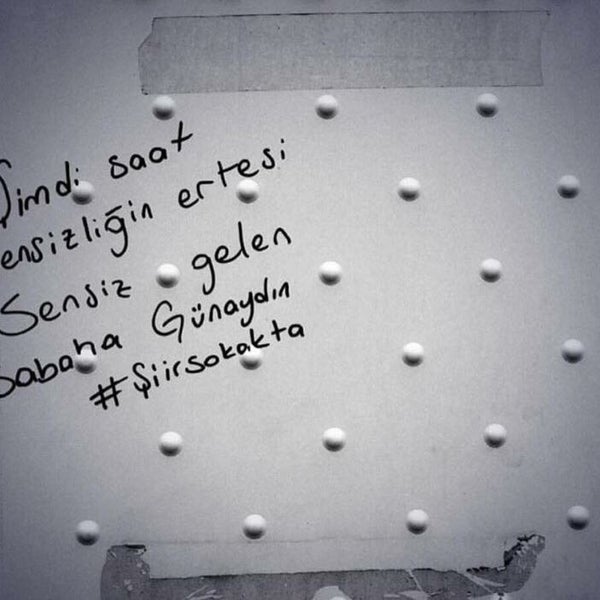 Şimdi saat
ensizliğin ertesi
Sensiz gelen
Sabaha Günaydın
#Şiirsokakta